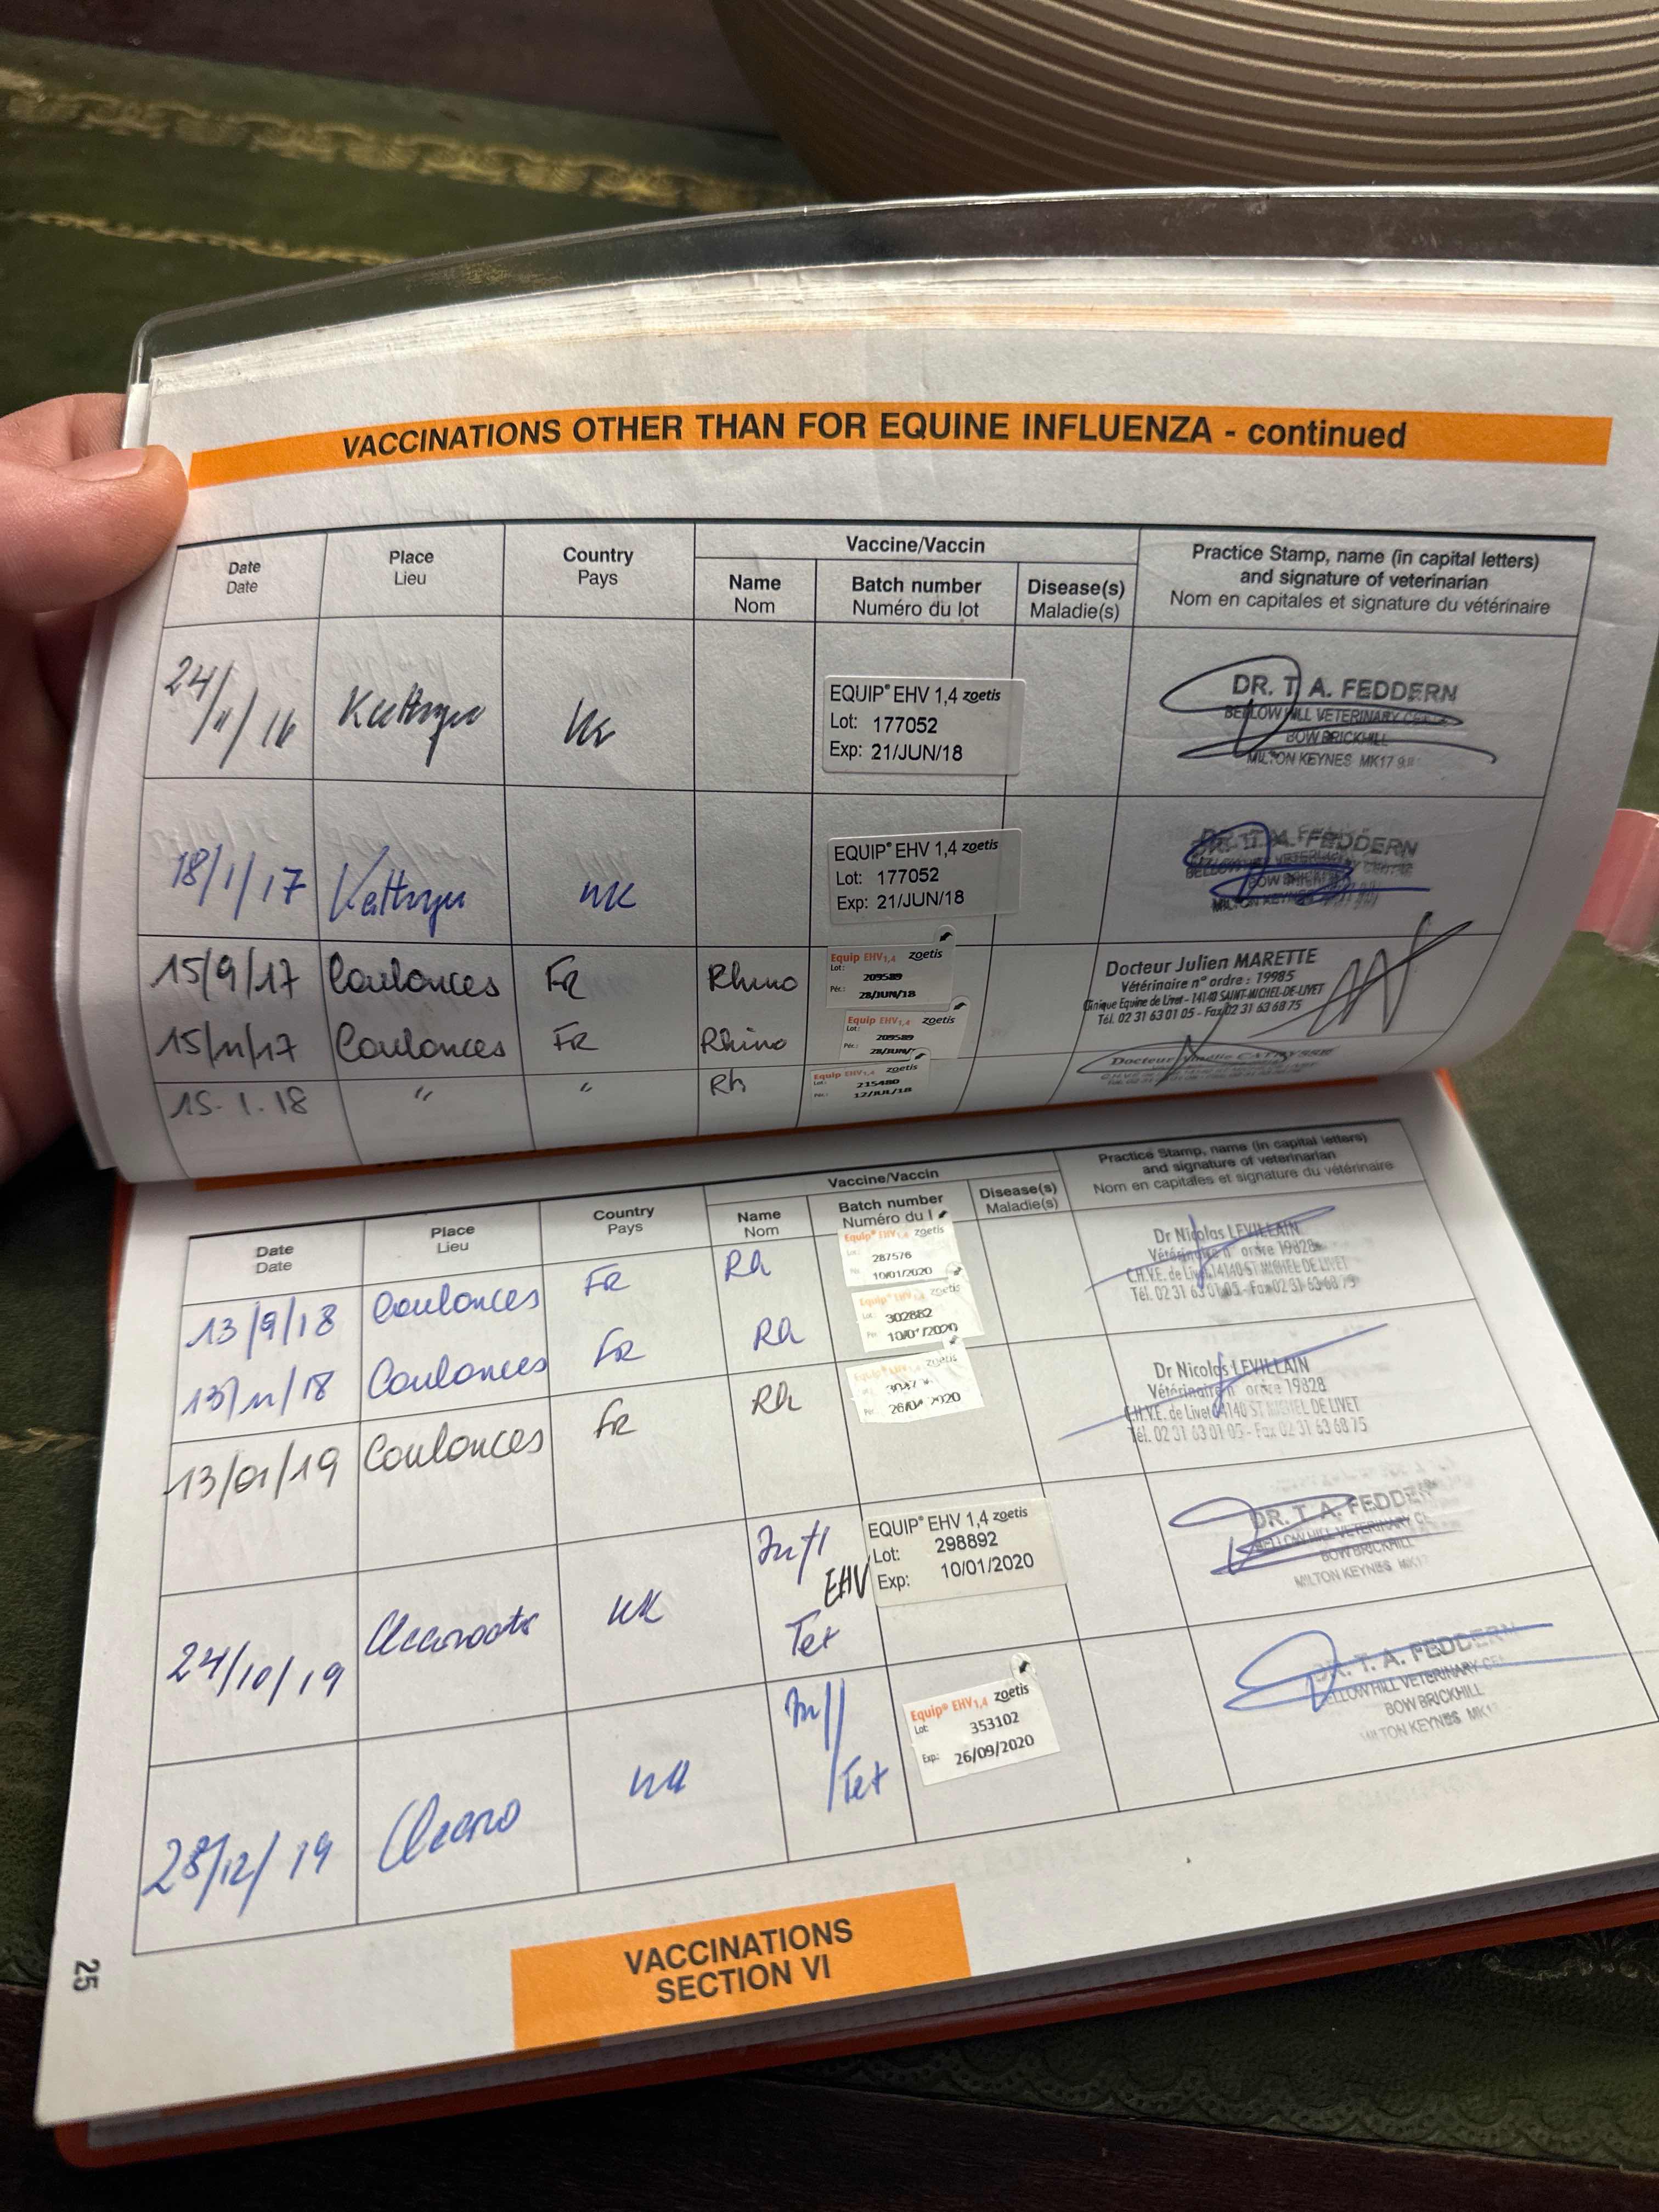 VACCINATIONS OTHER THAN FOR EQUINE INFLUENZA - continued
Date
Date
Place
Lieu
Country
Pays
Vaccine/Vaccin
Name
Nom
Batch number
Numéro du lot
Disease(s)
Maladie(s)
Practice Stamp, name (in capital letters)
and signature of veterinarian
Nom en capitales et signature du vétérinaire
24/11/16
UK
EQUIP® EHV 1,4 zoetis
Lot: 177052
Exp: 21/JUN/18
DR. T. A. FEDDERN
BELLOW HILL VETERINARY
BOW BRICKHILL
MILTON KEYNES MK17
18/1/17
UK
EQUIP® EHV 1,4 zoetis
Lot: 177052
Exp: 21/JUN/18
DR. T. A. FEDDERN
BELLOW HILL VETERINARY CENTRE
BOW BRICKHILL
MILTON KEYNES
15/9/17 Coulonces FR Rhino
Equip EHV1,4 zoetis
Lot: 209589
Pér.: 28/JUN/18
Docteur Julien MARETTE
Vétérinaire n° ordre : 19985
Clinique Equine de Livet - 14140 SAINT-MICHEL-DE-LIVET
Tél. 02 31 63 01 05 - Fax 02 31 63 68 75
15/11/17 Coulonces FR Rhino
Equip EHV1,4 zoetis
Lot: 209589
Pér.: 28/JUN/
Docteur CATRYSSE
15.1.18 " " Rh
Equip EHV1,4 zoetis
Lot: 215480
Pér.: 12/JUL/18
Date
Date
Place
Lieu
Country
Pays
Vaccine/Vaccin
Name
Nom
Batch number
Numéro du l
Disease(s)
Maladie(s)
Practice Stamp, name (in capital letters)
and signature of veterinarian
Nom en capitales et signature du vétérinaire
13/9/18 Coulonces FR Rh
Equip® EHV1,4 zoetis
Lot: 287576
10/01/2020
Dr Nicolas LEVILLAIN
Vétérinaire n° ordre 19828
C.H.V.E. de Livet 14140 ST MICHEL DE LIVET
Tél. 02 31 63 01 05 - Fax 02 31 63 68 75
13/11/18 Coulonces FR Rh
Equip® EHV1,4 zoetis
Lot: 302882
13/01/19 Coulonces FR Rh
zoetis
Dr Nicolas LEVILLAIN
Vétérinaire n° ordre 19828
C.H.V.E. de Livet 14140 ST MICHEL DE LIVET
Tél. 02 31 63 01 05 - Fax 02 31 63 68 75
24/10/19
UK
Infl
EHV
Tet
EQUIP® EHV 1,4 zoetis
Lot: 298892
Exp: 10/01/2020
DR. T. A. FEDDER
BELLOW HILL VETERINARY CE
BOW BRICKHILL
MILTON KEYNES MK17
28/12/19
UK
Infl
/Tet
Equip® EHV1,4 zoetis
Lot: 353102
Exp: 26/09/2020
DR. T. A. FEDDERN
BELLOW HILL VETERINARY CEN
BOW BRICKHILL
MILTON KEYNES MK1
VACCINATIONS
SECTION VI
25